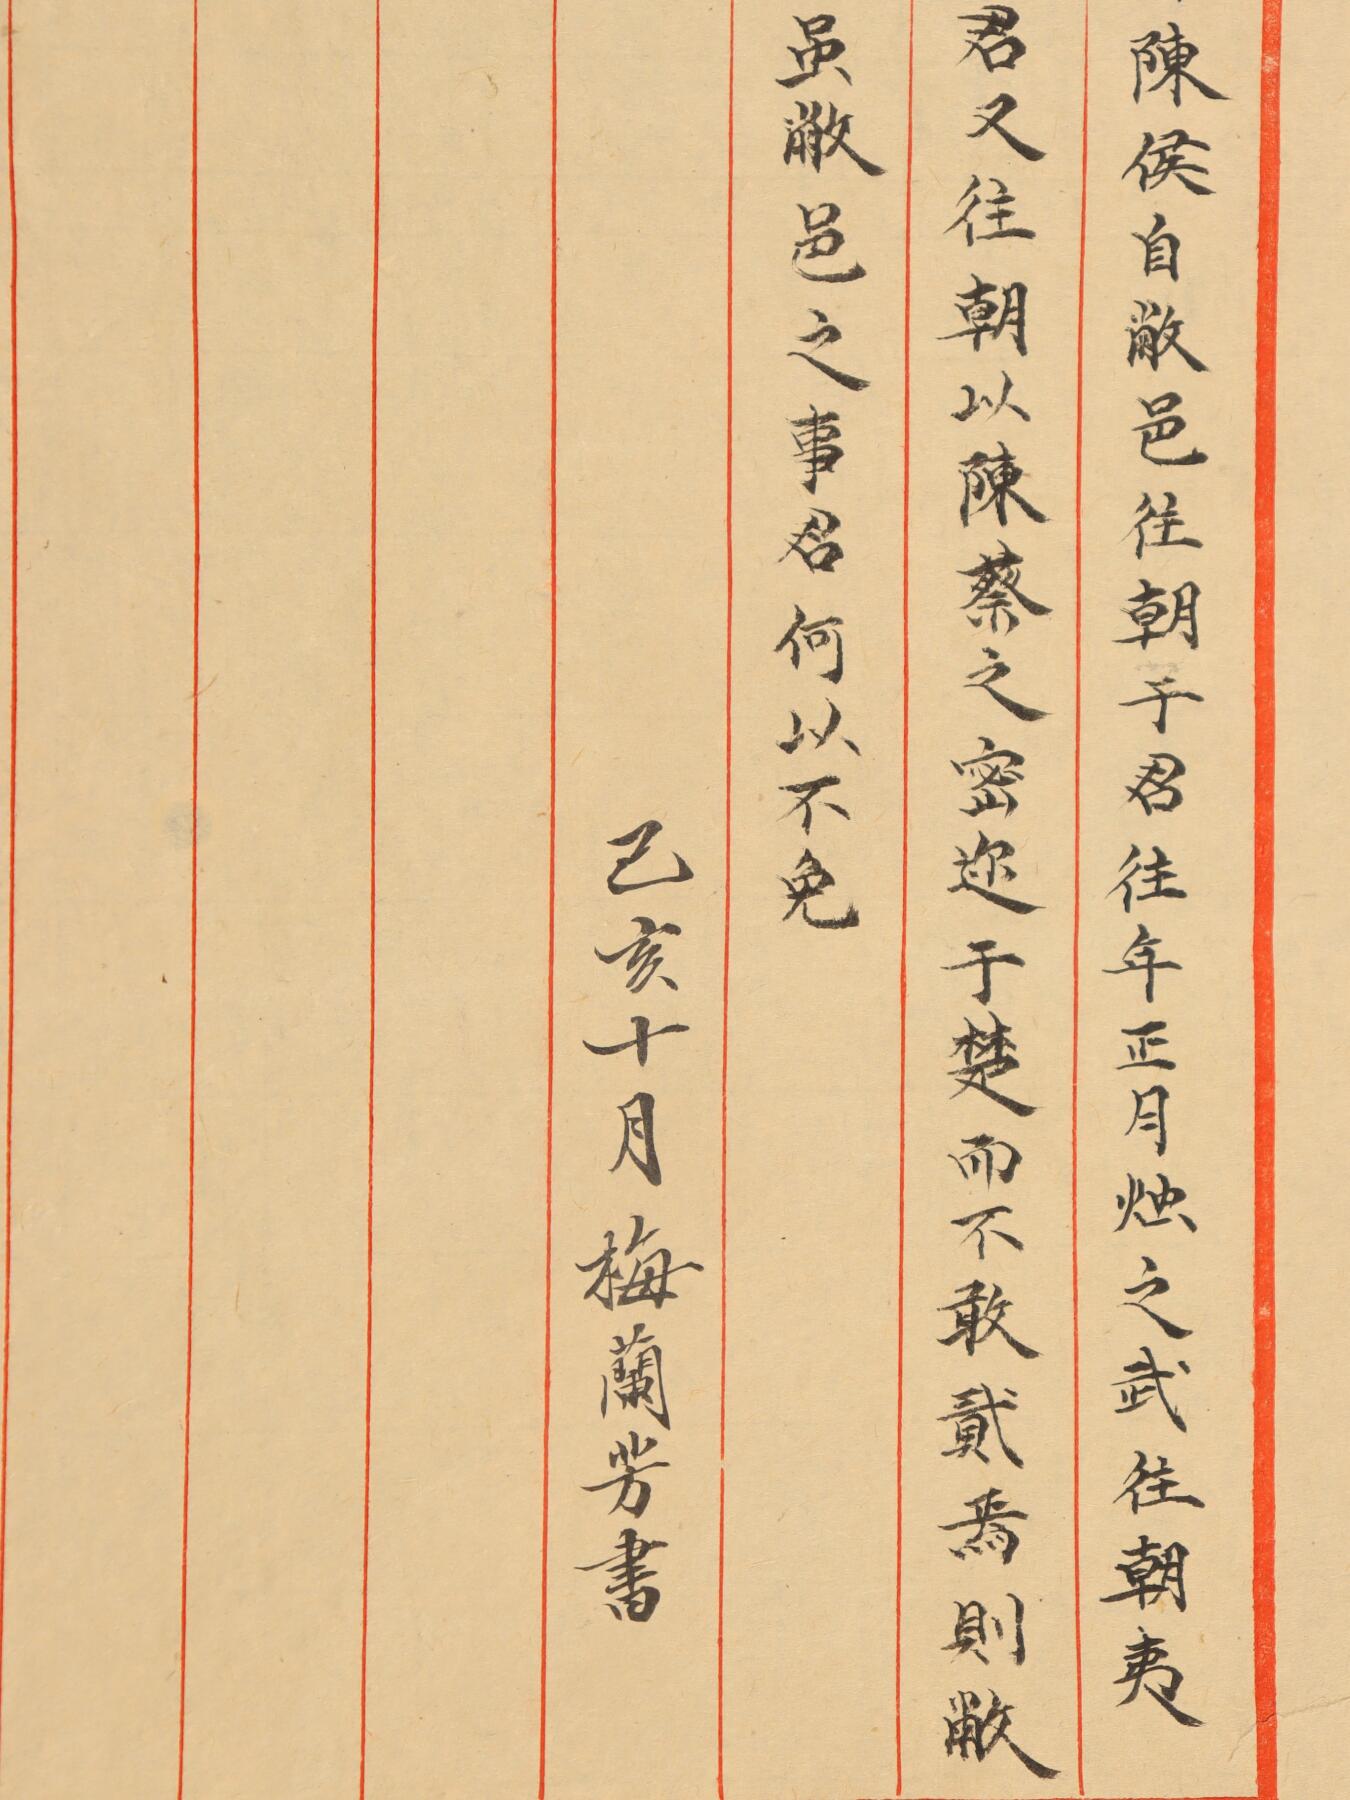 陳侯自敝邑往朝于君往年正月烛之武往朝夷
君又往朝以陳蔡之密迩于楚而不敢貳焉則敝
虽敝邑之事君何以不免
己亥十月梅蘭芳書